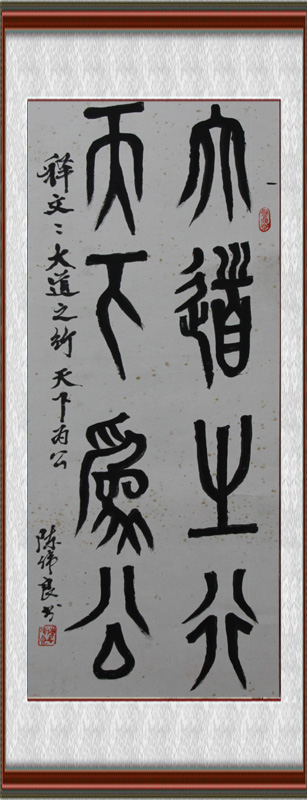 大道之行
天下為公
释文：大道之行天下为公
陈伟良书